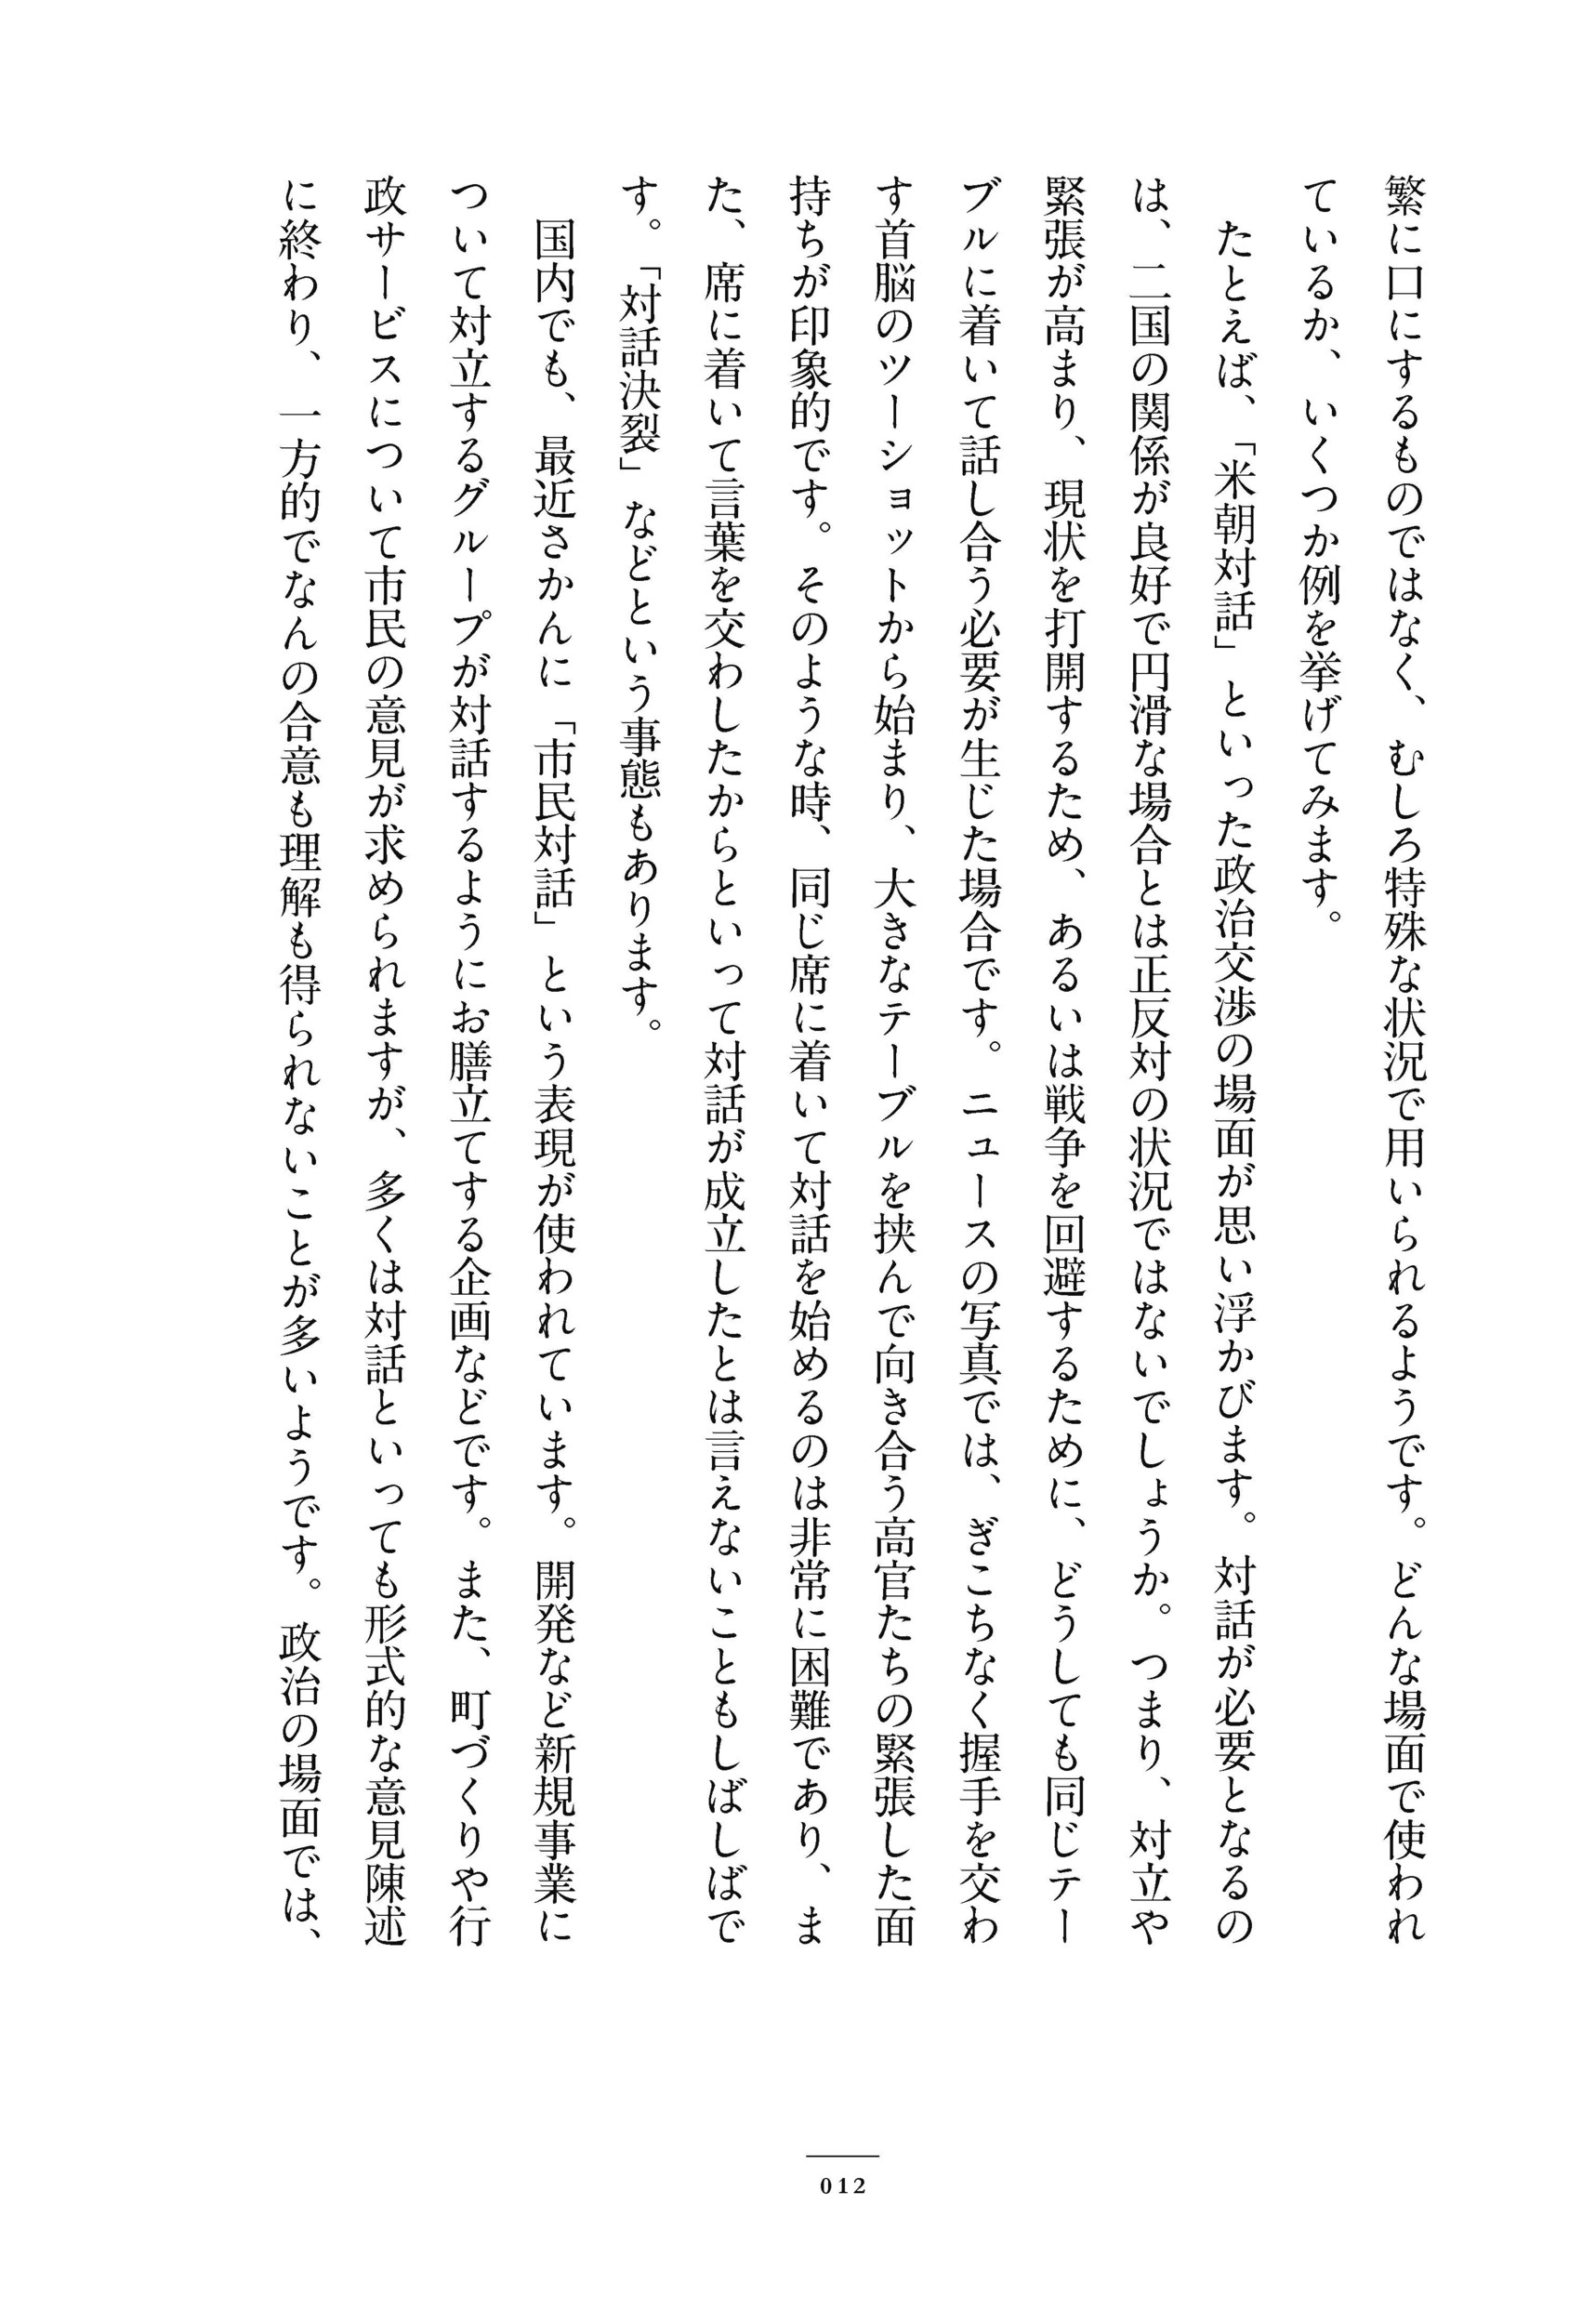 繁に口にするものではなく、むしろ特殊な状況で用いられるようです。どんな場面で使われ
ているか、いくつか例を挙げてみます。
たとえば、「米朝対話」といった政治交渉の場面が思い浮かびます。対話が必要となるの
は、二国の関係が良好で円滑な場合とは正反対の状況ではないでしょうか。つまり、対立や
緊張が高まり、現状を打開するため、あるいは戦争を回避するために、どうしても同じテー
ブルに着いて話し合う必要が生じた場合です。ニュースの写真では、ぎこちなく握手を交わ
す首脳のツーショットから始まり、大きなテーブルを挟んで向き合う高官たちの緊張した面
持ちが印象的です。そのような時、同じ席に着いて対話を始めるのは非常に困難であり、ま
た、席に着いて言葉を交わしたからといって対話が成立したとは言えないこともしばしばで
す。「対話決裂」などという事態もあります。
国内でも、最近さかんに「市民対話」という表現が使われています。開発など新規事業に
ついて対立するグループが対話するようにお膳立てする企画などです。また、町づくりや行
政サービスについて市民の意見が求められますが、多くは対話といっても形式的な意見陳述
に終わり、一方的でなんの合意も理解も得られないことが多いようです。政治の場面では、
012